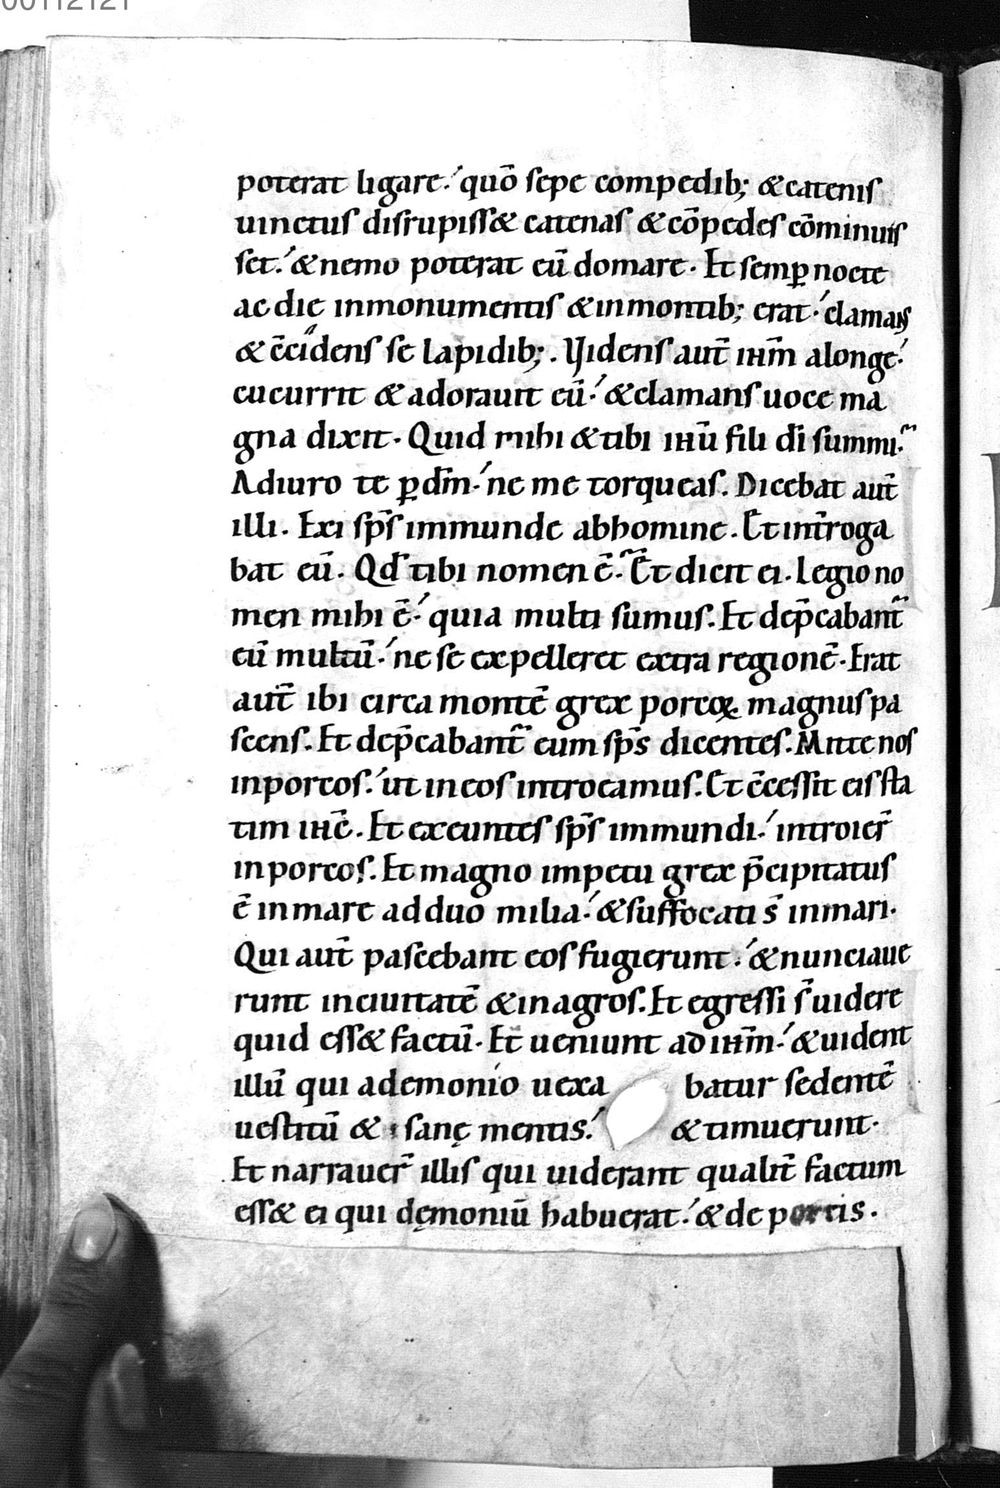 00112121
poterat ligare. quō sepe compedib; & catenis
uinctus disrupiss& catenas & cōpedes cōminuis
set. & nemo poterat eū domare. Et semꝑ nocte
ac die inmonumentis & inmontib; erat. clamans
& c̄cidens se lapidib;. Uidens aut̄ ihm̄ alonge.
cucurrit & adorauit eū. & clamans uoce ma
gna dixit. Quid mihi & tibi ihū fili dī summi.
Adiuro te ꝑ dm̄. ne me torqueas. Dicebat aut̄
illi. Exi sp̄s immunde abhomine. Et int̄roga
bat eū. Qd̄ tibi nomen ē. Et dicit ei. Legio no
men mihi ē. quia multi sumus. Et dep̄cabant̄
eū multū. ne se expelleret extra regionē. Erat
aut̄ ibi circa montē grex porcoꝝ magnus pa
scens. Et dep̄cabant̄ eum sp̄s dicentes. Mitte nos
inporcos. ut in eos introeamus. Et c̄cessit eis sta
tim ihc̄. Et exeuntes sp̄s immundi. introier̄
inporcos. Et magno impetu grex p̄cipitatus
ē inmare adduo milia. & suffocati s̄ inmari.
Qui aut̄ pascebant eos fugierunt. & nunciaue
runt inciuitatē & inagros. Et egressi s̄ uidere
quid ess& factū. Et ueniunt ad ihm̄. & uident
illū qui ademonio uexa batur sedentē
uestitū & sanę mentis. & timuerunt.
Et narrauer̄ illis qui uiderant qualit̄ factum
ess& ei qui dęmoniū habuerat. & de portis.